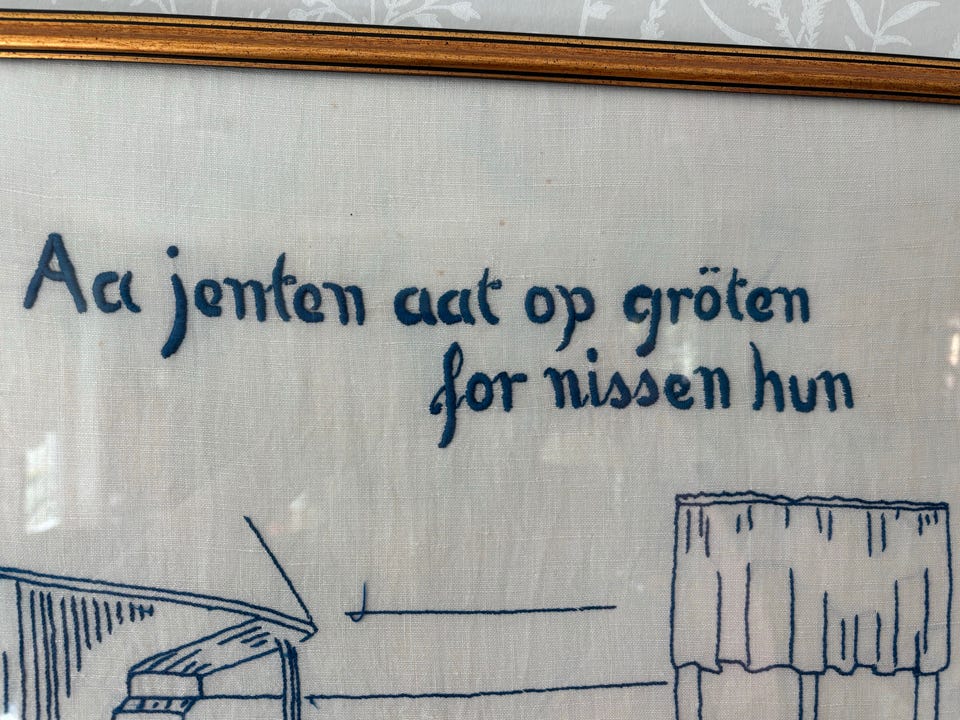 Aa jenten aat op gröten
for nissen hun